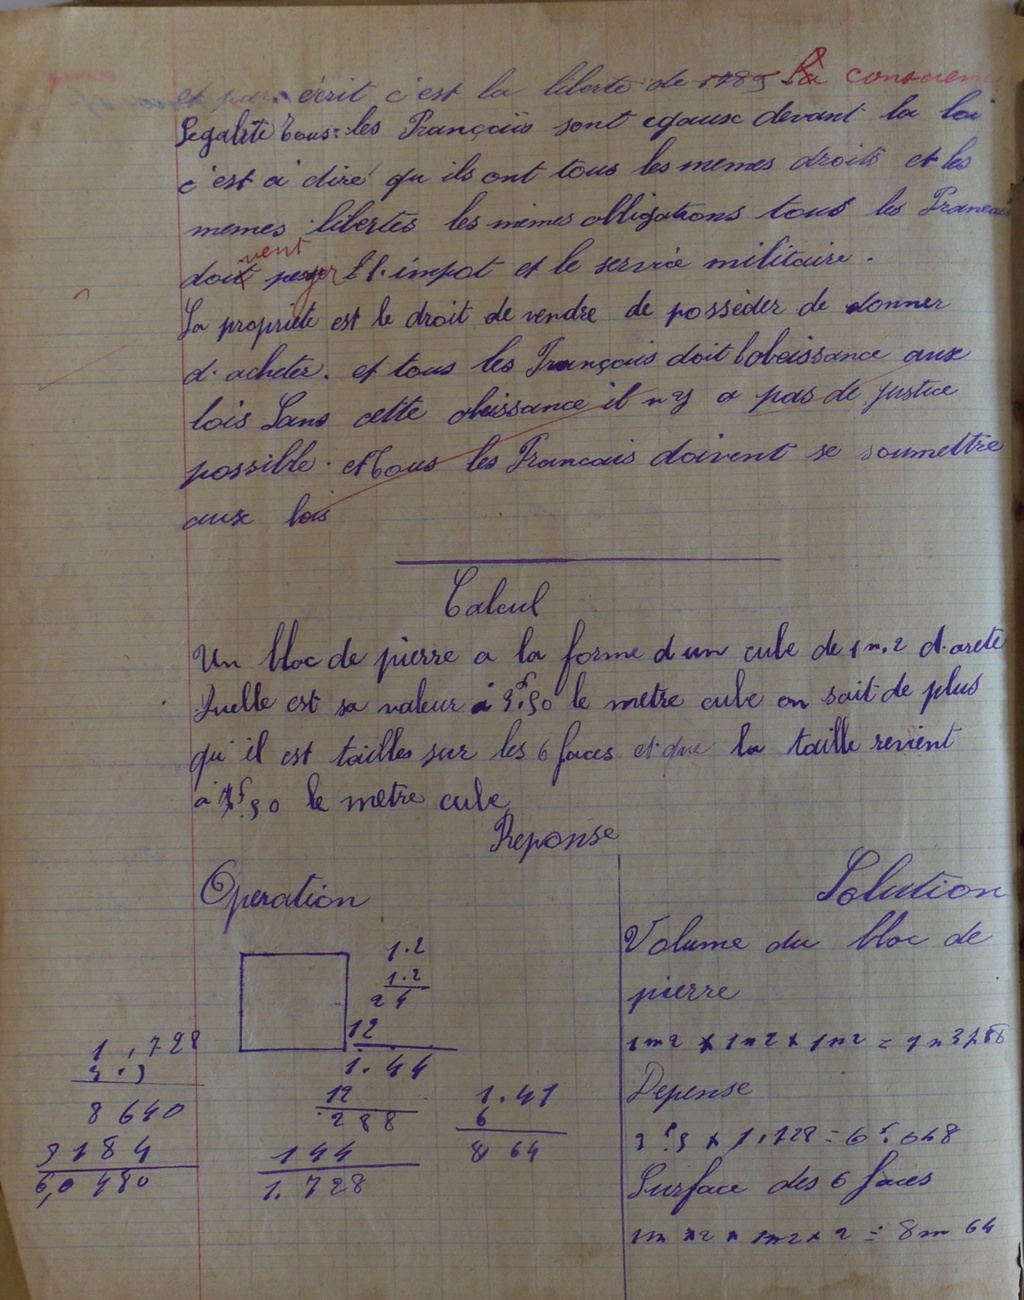 écrit c'est la liberté de 1789 La conscien
Legalité tous les Françaiis sont egaux devant la loi
c'est a diré qu ils ont tous les memes droits et les
memes libertés les mêmes obligations tous les Francais
doit vent payer l'impot et le service militaire.
La propriété est le droit de vendre de posséder de donner
d. acheter. et tous les Français doit lobeissance aux
lois Sans cette obeissance il n y a pas de justice
possible. et tous les Francais doivent se soumettre
aux lois
Calcul
Un bloc de pierre a la forme d un cube de 1 m. 2 d. arete
Quelle est sa valeur a 3f.50 le metre cube on sait de plus
qu'il est tailles sur les 6 faces et que la taille revient
a f.50 le metre cube
Reponse
Operation
1.2
1.2
24
12
1.44
12
288
144
1.728
1,728
3.5
8640
5184
6,0480
1.41
6
8 64
Solution
Volume du bloc de
pierre
1m2 x 1m2 x 1m2 =
Depense
3f5 x 1.728 = 6f.048
Surface des 6 faces
1m x2 x 1m2 x 2 = 8m 64